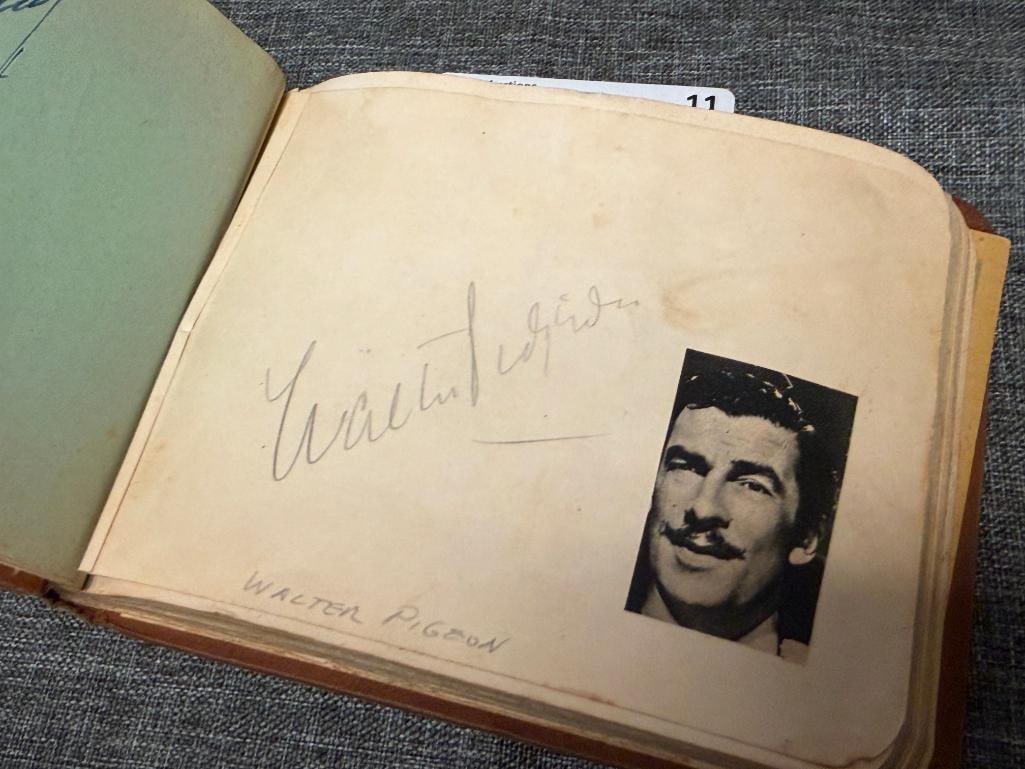 11
Walter Pidgeon
WALTER PIGEON